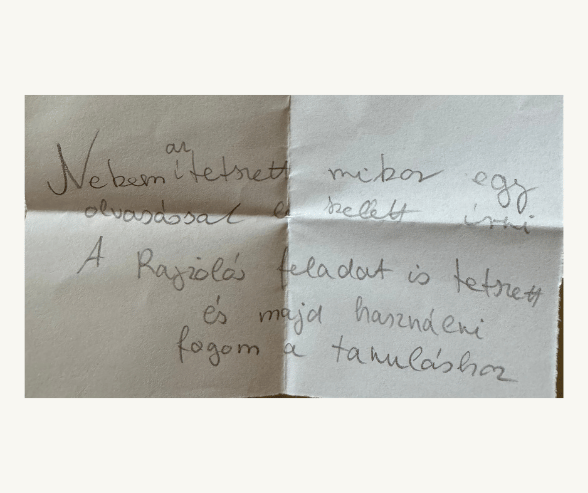 Nekem az tetszett mikor egy
olvasással kellett írni
A Rajzolás feladat is tetszett
és majd használni
fogom a tanuláshoz